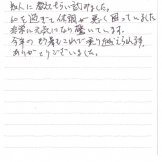 知人に教えてもらい試しました。
60を過ぎて体調が悪く困っていました
非常に元気になり驚いています。
今年の夏もこれで乗り越えられます。
ありがとうございました。